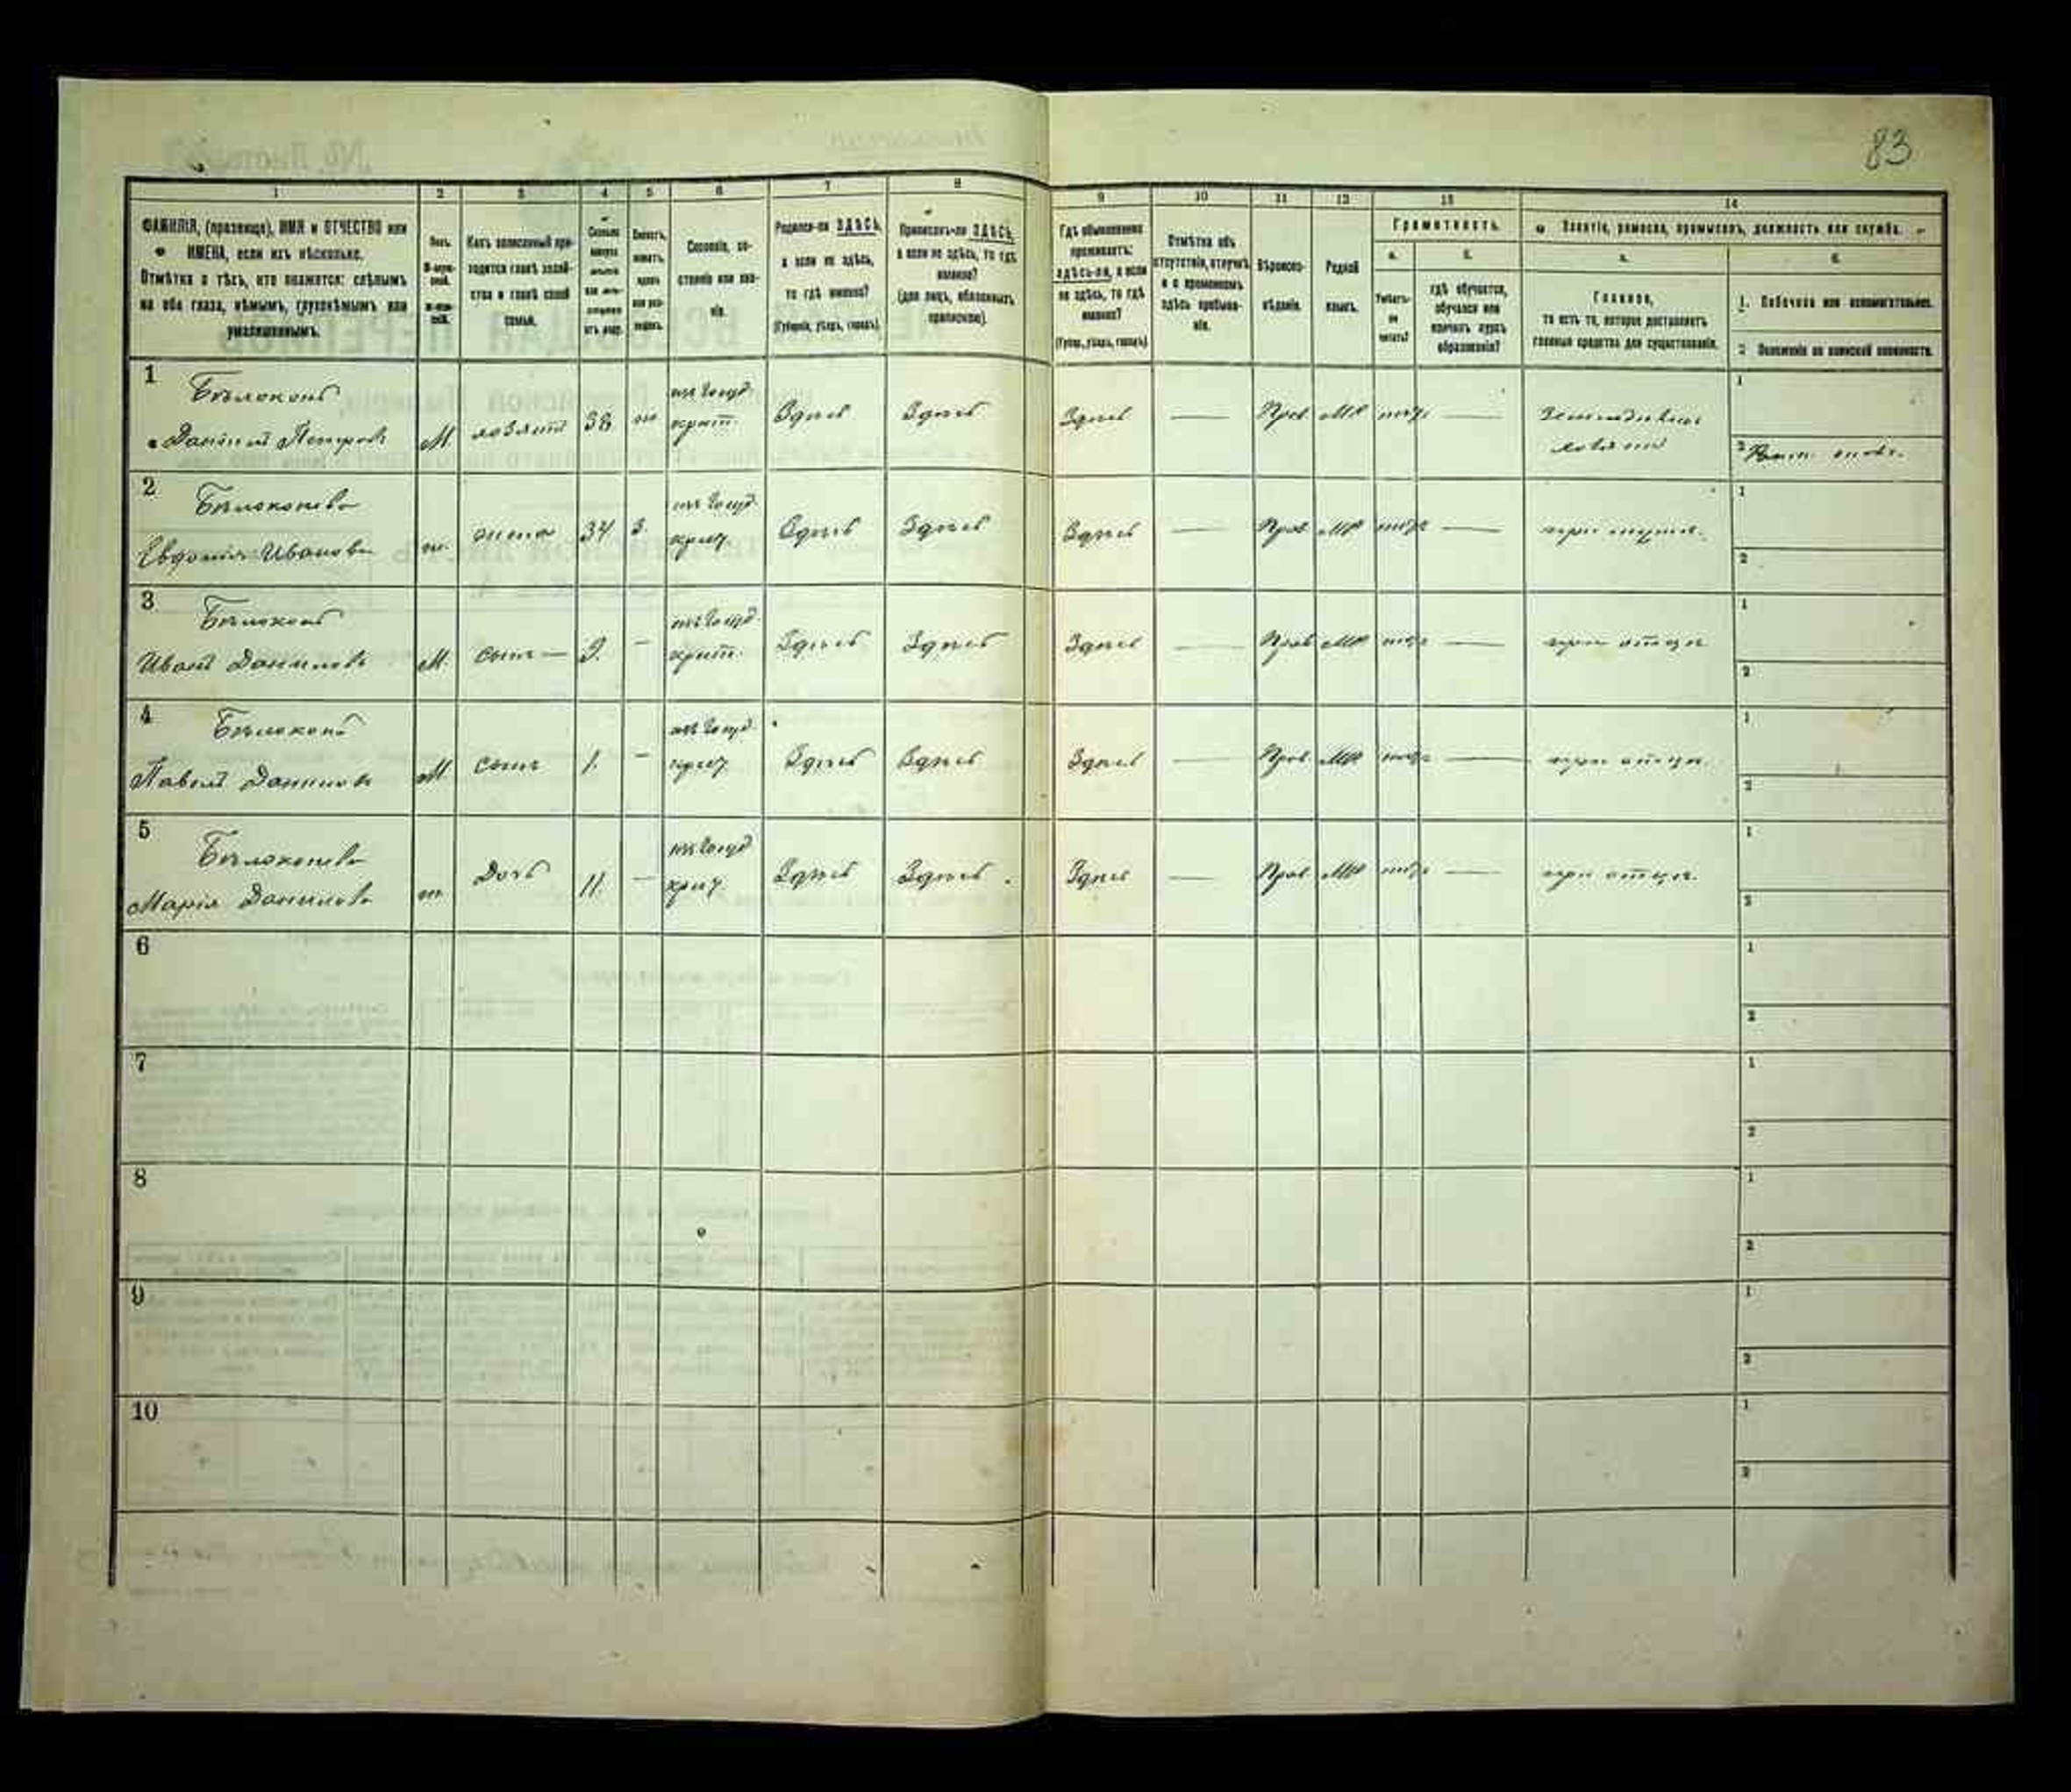 83
1
2
3
4
5
6
7
8
9
10
11
12
13
14
ФАМИЛІЯ, (прозвище), ИМЯ и ОТЧЕСТВО или
ИМЕНА, если ихъ нѣсколько.
Отмѣтка о тѣхъ, кто окажется: слѣпымъ
на оба глаза, нѣмымъ, глухонѣмымъ или
умалишеннымъ.
Полъ.
Какъ записанный при-
ходится главѣ хозяй-
ства и главѣ своей
семьи.
Сословіе, со-
стояніе или зва-
ніе.
Родился-ли ЗДѢСЬ,
а если не здѣсь,
то гдѣ именно?
(Губернія, уѣздъ, городъ).
Приписанъ-ли ЗДѢСЬ,
а если не здѣсь, то гдѣ
именно?
(для лицъ, обязанныхъ
припискою).
Гдѣ обыкновенно
проживаетъ:
здѣсь-ли, а если
не здѣсь, то гдѣ
именно?
(Губер., уѣздъ, городъ)
Отмѣтка объ
отсутствіи, отлучкѣ
и о временномъ
здѣсь пребыва-
ніи.
Вѣроиспо-
вѣданіе.
Родной
языкъ.
Грамотность.
а.
Умѣетъ-
ли
читать?
б.
гдѣ обучается,
обучался или
кончилъ курсъ
образованія?
Занятіе, ремесло, промыселъ, должность или служба.
а.
Главное,
то есть то, которое доставляетъ
главныя средства для существованія.
б.
1. Побочное или вспомогательное.
2. Положеніе по воинской повинности.
1 Бѣлоконь
Даніилъ Петровъ М. хозяинъ 38 изъ госуд. крест. Здѣсь Здѣсь Здѣсь — Прав. МР — 1
2
2 Бѣлоконева
Евдокія Иванова ж. жена 34 З. изъ госуд. крест. Здѣсь Здѣсь Здѣсь — Прав. МР — при мужѣ. 1
2
3 Бѣлоконь
Иванъ Даниловъ М. сынъ — 9. — изъ госуд. крест. Здѣсь Здѣсь Здѣсь — Прав МР — при отцѣ 1
2
4 Бѣлоконь
Павелъ Даниловъ М. сынъ 1. — изъ госуд. крест. Здѣсь Здѣсь Здѣсь — Прав. МР — при отцѣ. 1
2
5 Бѣлоконева
Марія Данилова ж. Дочь 11. — изъ госуд крест. Здѣсь Здѣсь. Здѣсь — Прав. МР — при отцѣ. 1
2
6 1
2
7 1
2
8 1
2
9 1
2
10 1
2